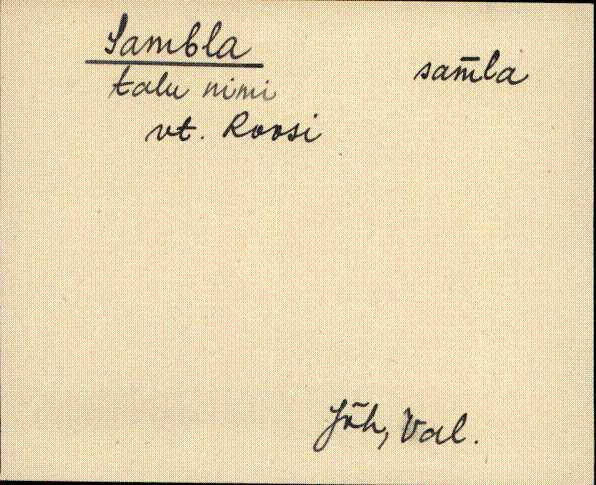 Sambla
sam̅la
talu nimi
vt. Roosi
Jõh, Val.